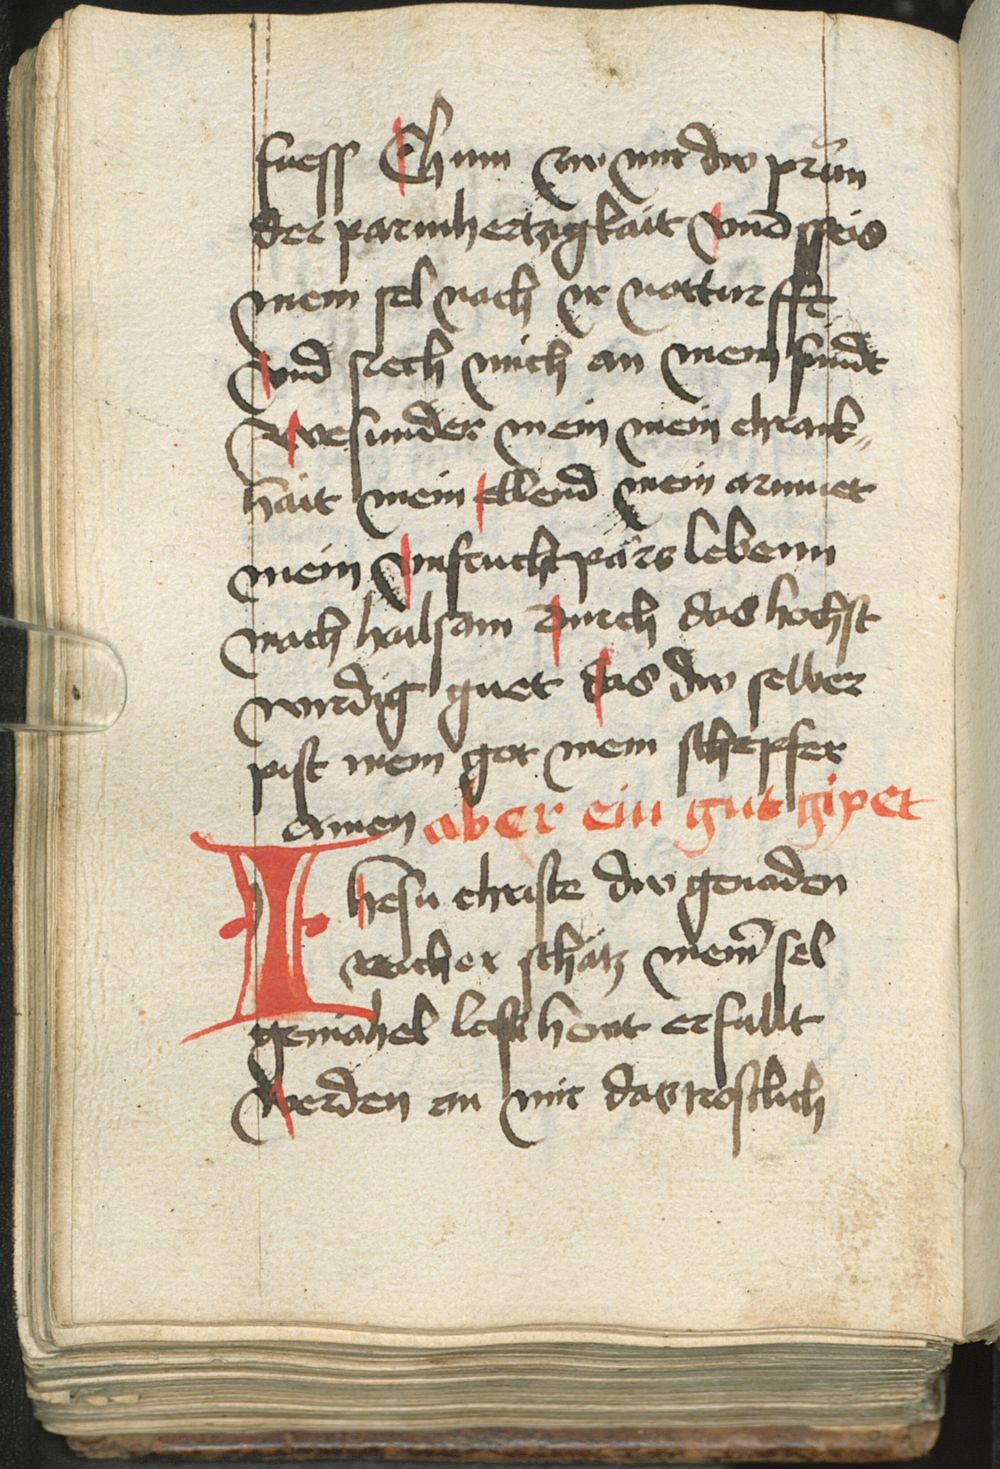 fuess Chum zw mir dw prün
der parmhertzigkait vnd speis
mein sel nach ir notturfft
vnd sech mich an mein sundt
wesunder mein mein chrank„
hait mein ellend mein armuet
mein vnfruchtpärs lebenn
mach hailsam durch das hochst
wirdig guet das dw selber
pist mein got mein schepfer
Amen aber ein gut gipet
Ihesu christe dw genaden
reicher schatz meiner sel
gemahel lass hewt erfullt
werden an mir das trostlich